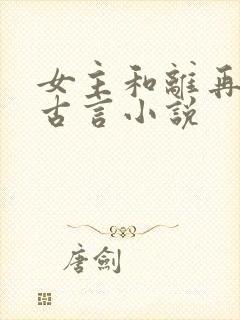 女主和離再
古言小說
唐劍